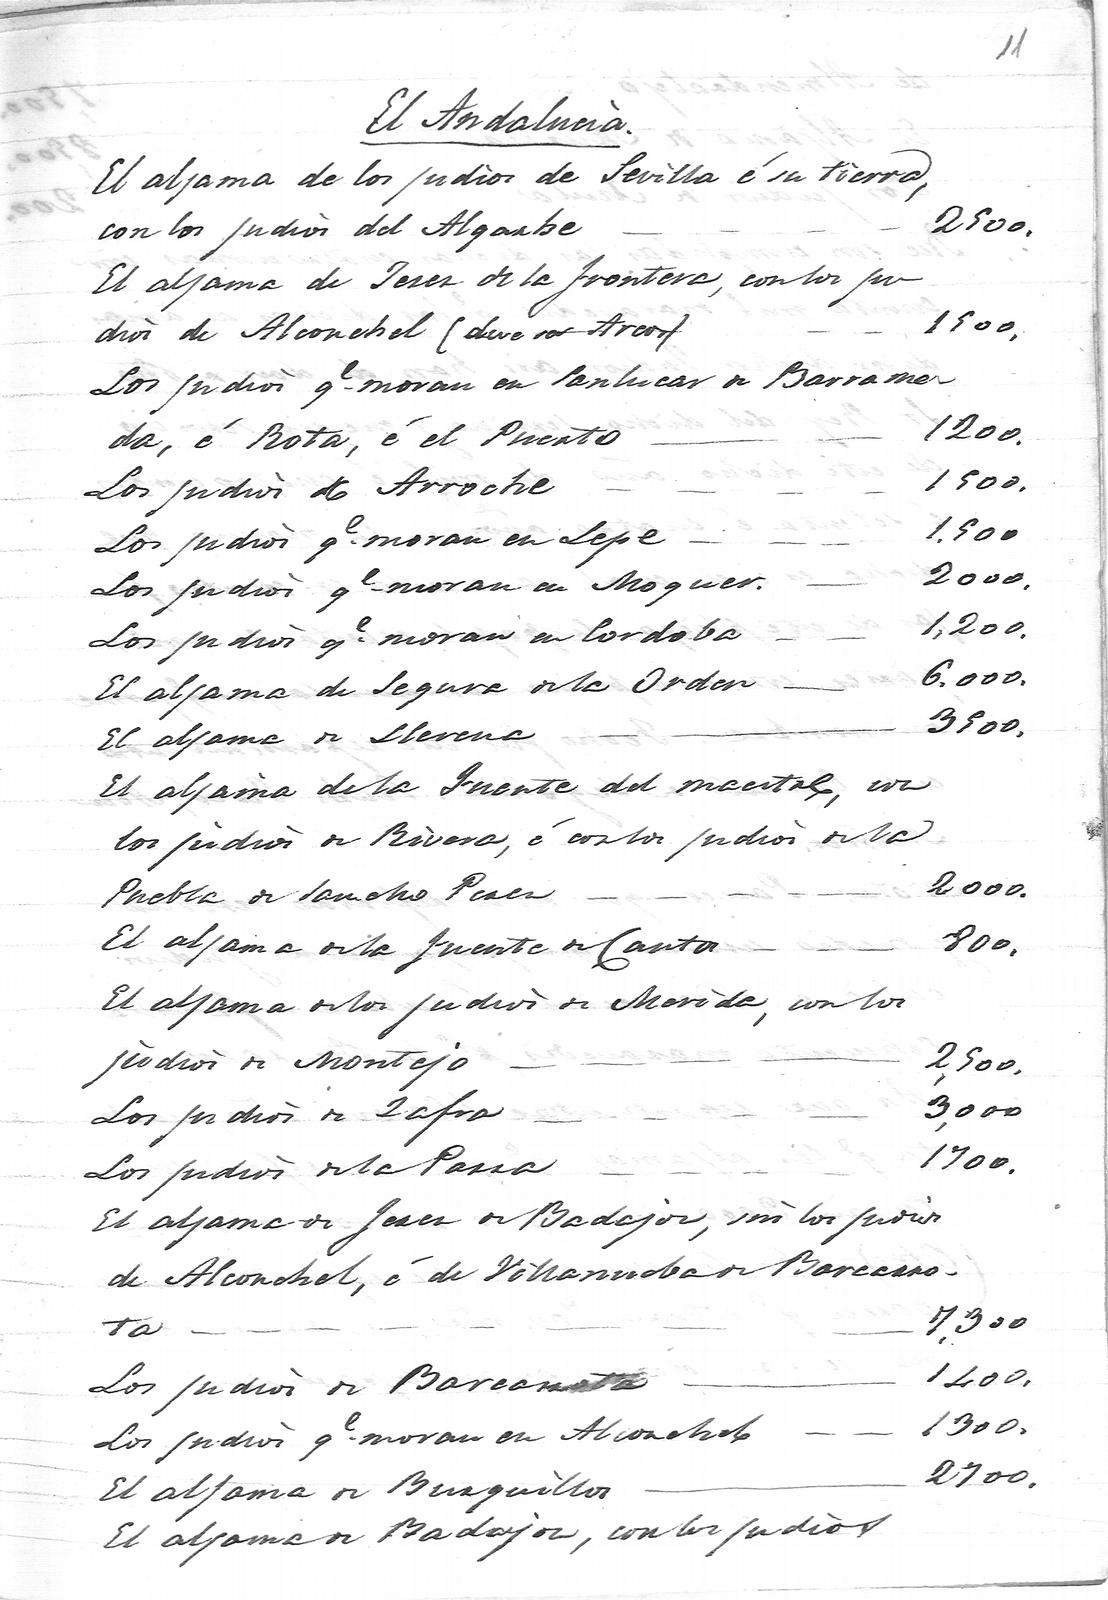 11
El Andalucia.
El aljama de los judios de Sevilla é su tierra,
con los judios del Algarbe 2500.
El aljama de Jerez de la frontera, con los ju-
dios de Alconchel (deve ser Arcos) 1500.
Los judios qe. moran en Sanlucar de Barrame-
da, é Rota, é el Puerto 1200.
Los judios de Arroche 1500.
Los judios qe. moran en Lepe 1.500
Los judios qe. moran en Moguer. 2000.
Los judios qe. moran en Cordoba 1,200.
El aljama de Segura de la Orden 6.000.
El aljama de Llerena 3500.
El aljama de la Fuente del maestre, con
los judios de Rivera, é con los judios de la
Puebla de Sancho Perez 2000.
El aljama de la fuente de Cantos 800.
El aljama de los judios de Merida, con los
judios de Montejo 2,500.
Los judios de Zafra 3,000
Los judios de la Parra 1700.
El aljama de Jerez de Badajoz, sin los judios
de Alconchel, é de Villanueba de Barcarro-
ta 7,300
Los judios de Barcarrota 1400.
Los judios qe. moran en Alconchel 1300.
El aljama de Burguillos 2700.
El aljama de Badajoz, con los judios